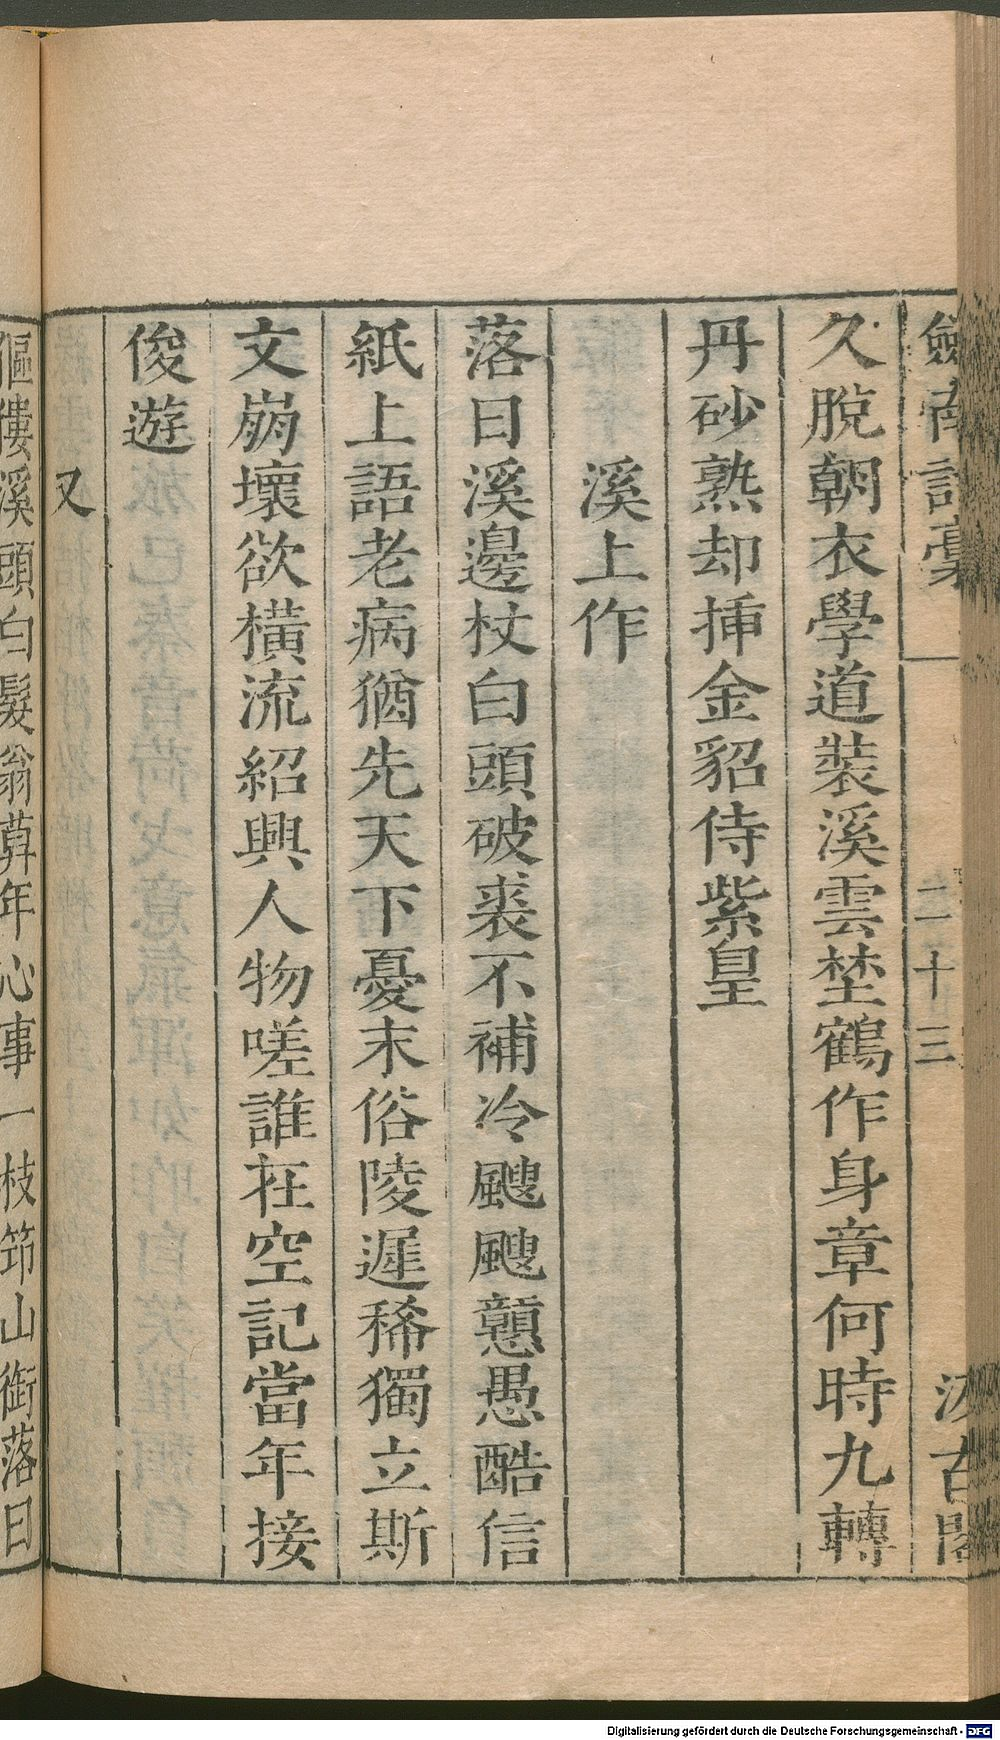 劒南詩稾 二十三 汲古閣
久脫朝衣學道裝溪雲埜鶴作身章何時九轉
丹砂熟却揷金貂侍紫皇
溪上作
落日溪邊杖白頭破裘不補冷颼颼戇愚酷信
紙上語老病猶先天下憂末俗陵遲稀獨立斯
文崩壞欲橫流紹興人物嗟誰在空記當年接
俊遊
又
傴僂溪頭白髮翁暮年心事一枝筇山銜落日
Digitalisierung gefördert durch die Deutsche Forschungsgemeinschaft - DFG